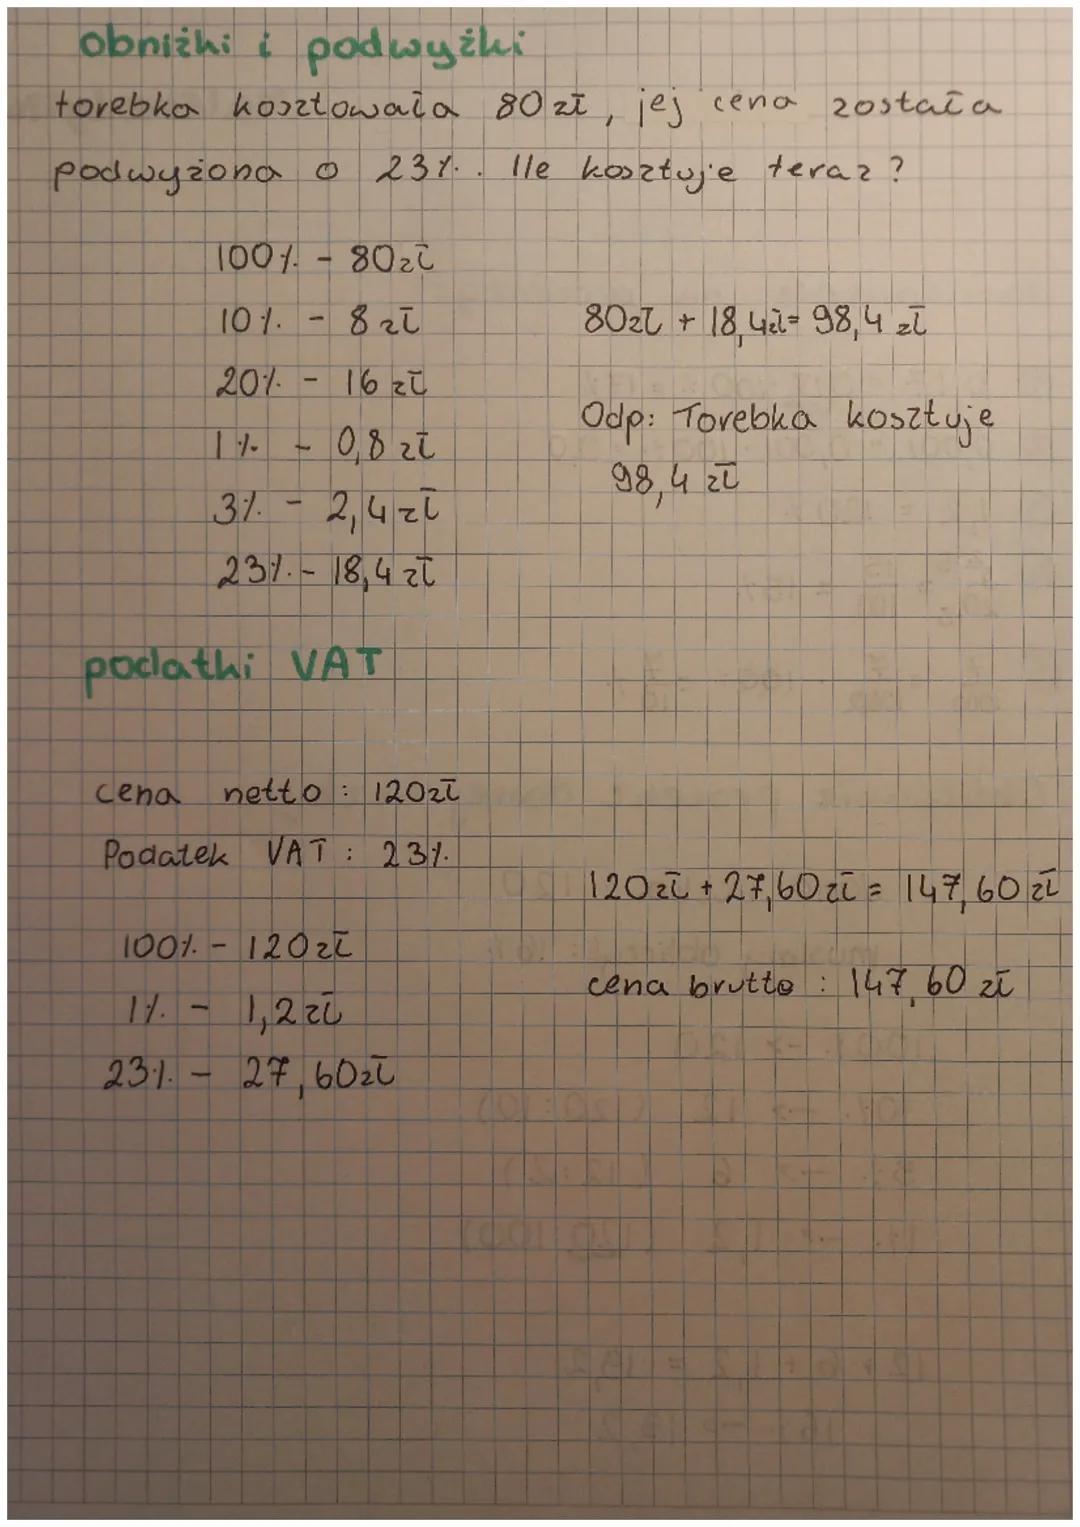 obniżki i podwyżki
torebka kosztowała 80 zł, jej cena została
podwyżona o 23%. Ile kosztuje teraz?
100% - 80 zł
10% - 8 zł
20% - 16 zł
1% - 0,8 zł
3% - 2,4 zł
23% - 18,4 zł
80zł + 18,4zł = 98,4 zł
Odp: Torebka kosztuje
98,4 zł
podatki VAT
cena netto: 120zł
Podatek VAT: 23%
100% - 120 zł
1% - 1,2 zł
23% - 27,60zł
120 zł + 27,60 zł = 147,60 zł
cena brutto: 147,60 zł